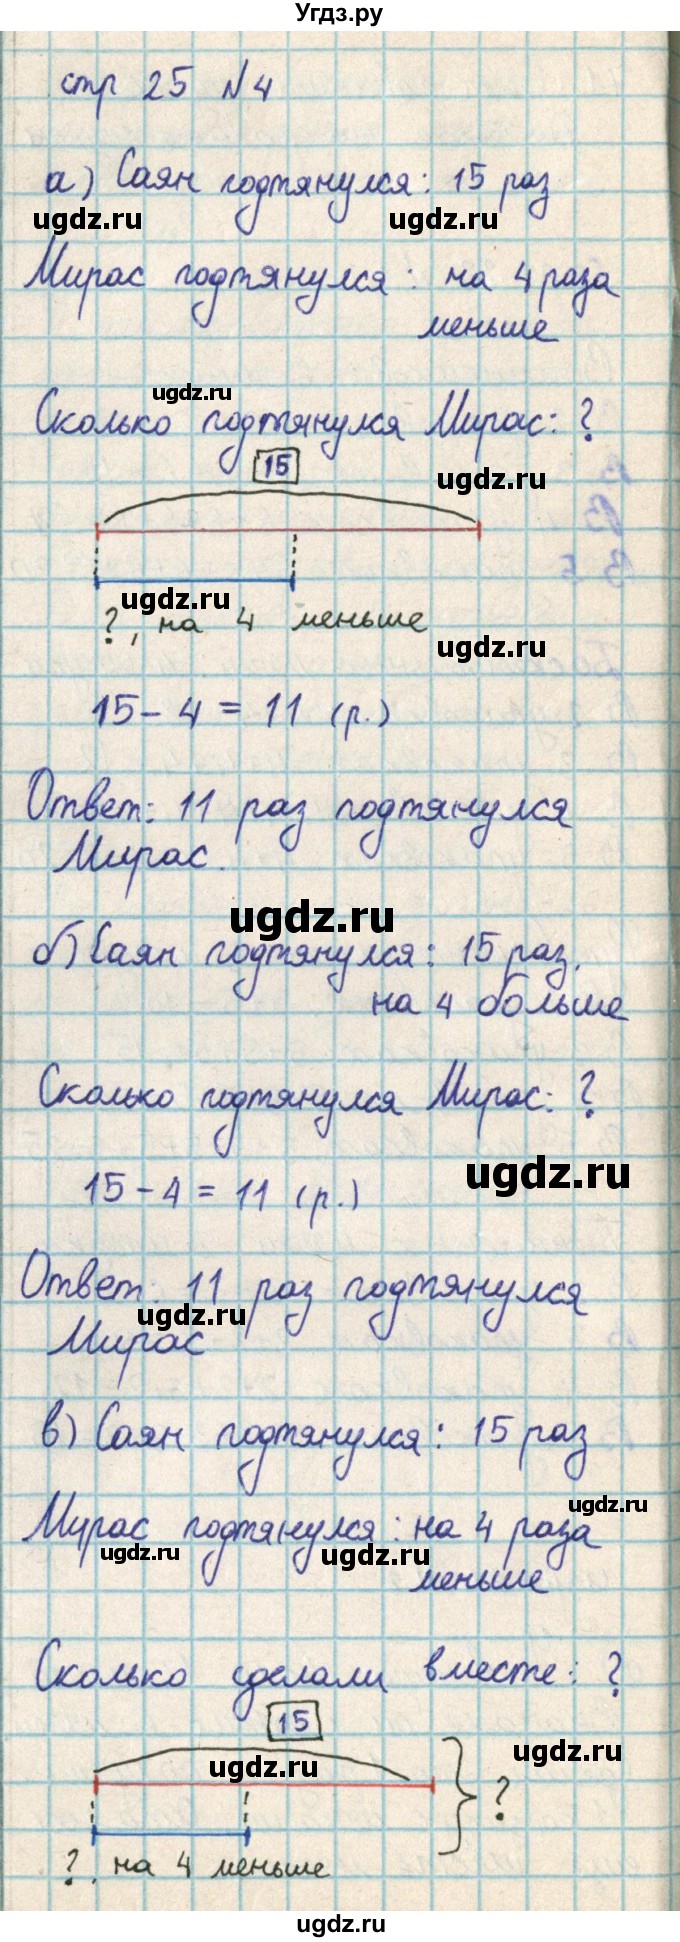 Угдз.ру
стр 25 №4
а) Саян подтянулся: 15 раз
ugdz.ru ugdz.ru
Мирас подтянулся: на 4 раза
меньше
ugdz.ru
Сколько подтянулся Мирас: ?
15
ugdz.ru
ugdz.ru
?, на 4 меньше
ugdz.ru
15 - 4 = 11 (р.)
Ответ: 11 раз подтянулся
Мирас.
ugdz.ru
б) Саян подтянулся: 15 раз,
на 4 больше
Сколько подтянулся Мирас: ?
ugdz.ru
15 - 4 = 11 (р.)
Ответ: 11 раз подтянулся
ugdz.ru
Мирас
в) Саян подтянулся: 15 раз
ugdz.ru
Мирас подтянулся: на 4 раза
ugdz.ru ugdz.ru
меньше
Сколько сделали вместе: ?
15
ugdz.ru
ugdz.ru
?
?, на 4 меньше
ugdz.ru